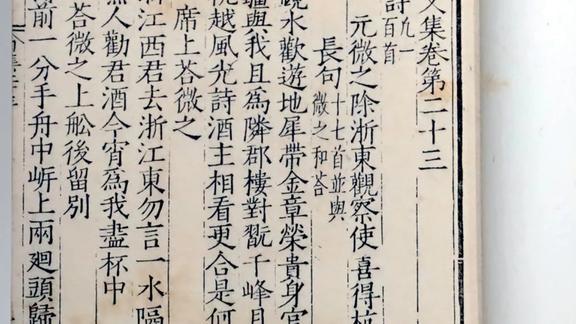 文集卷第二十三
詩九一百首
元微之除浙東觀察使喜得杭
長句十七首並與微之和荅
水歡遊地犀帶金章榮貴身官
疆與我且爲隣郡樓對翫千峰月
杭越風光詩酒主相看更合是何
席上荅微之
浙江西君去浙江東勿言一水隔
無人勸君酒今宵爲我盡杯中
荅微之上舩後留別
前一分手舟中岍上兩廻頭歸